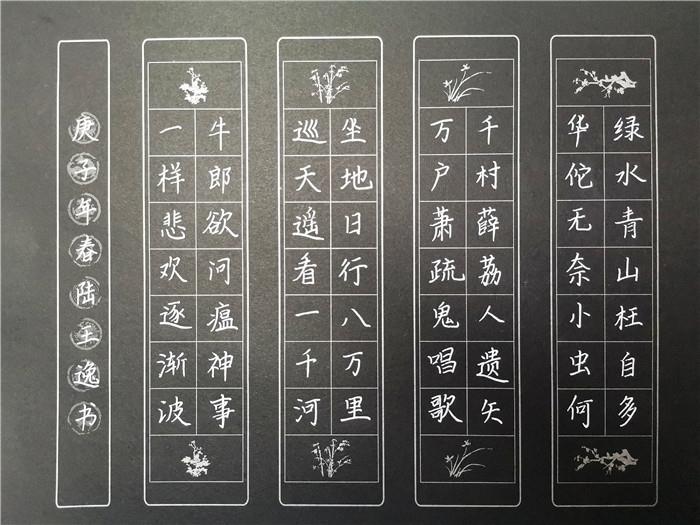 绿水青山枉自多
华佗无奈小虫何
千村薛荔人遗矢
万户萧疏鬼唱歌
坐地日行八万里
巡天遥看一千河
牛郎欲问瘟神事
一样悲欢逐渐波
庚子年春陆王逸书